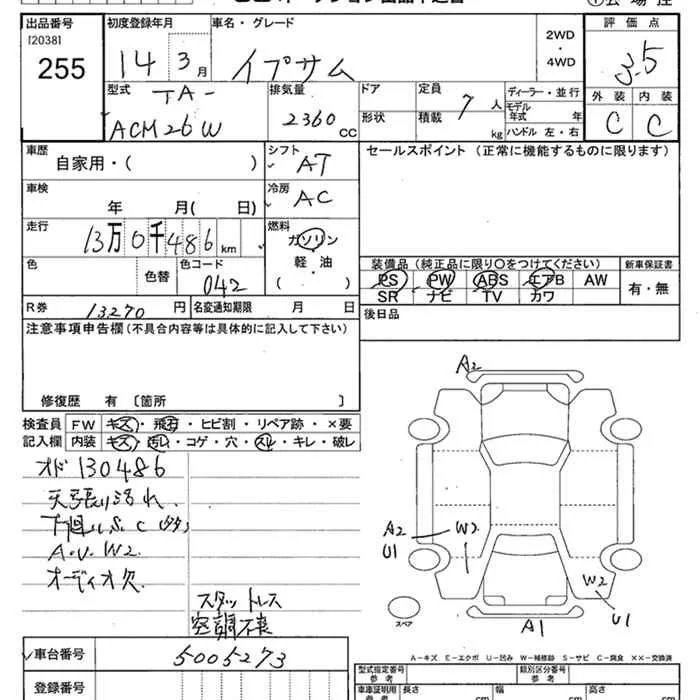 出品番号
120381
255
初度登録年月
14 3月
車名・グレード
イプサム
2WD
・
4WD
評価点
3.5
外装 内装
C C
型式
TA-
ACM26W
排気量
2360 CC
ドア
形状
定員
7人
積載
kg
ディーラー・並行
モデル
年式 年
ハンドル 左・右
車歴
自家用・( )
シフト
AT
セールスポイント (正常に機能するものに限ります)
車検
年 月( 日)
冷房
AC
走行
13万0千486km
燃料
ガソリン
軽・油
( ・ )
色
色替
色コード
042
装備品(純正品に限り○をつけてください)
新車保証書
PS PW ABS エアB AW
SR ナビ TV カワ
有・無
R券 13270円
名変通知期限 月 日
後日品
注意事項申告欄(不具合内容等は具体的に記入して下さい)
修復歴 有 〔箇所 〕
検査員
記入欄
FW キズ・飛石・ヒビ割・リペア跡・×要
内装 キズ・汚レ・コゲ・穴・スレ・キレ・破レ
オド130486
天張り汚れ
下廻りS.C(多)
A.U.W2.
オーディオ欠
スタッドレス
空調不良
A2
A2
U1
W2
W2
U1
A1
スペア
A-キズ E-エクボ U-凹み W-補修跡 S-サビ C-腐食 XX-交換済
車台番号
5005273
登録番号
型式指定番号
参考
類別区分番号
参考
車庫証明用
参考
長さ cm
幅 cm
高さ cm